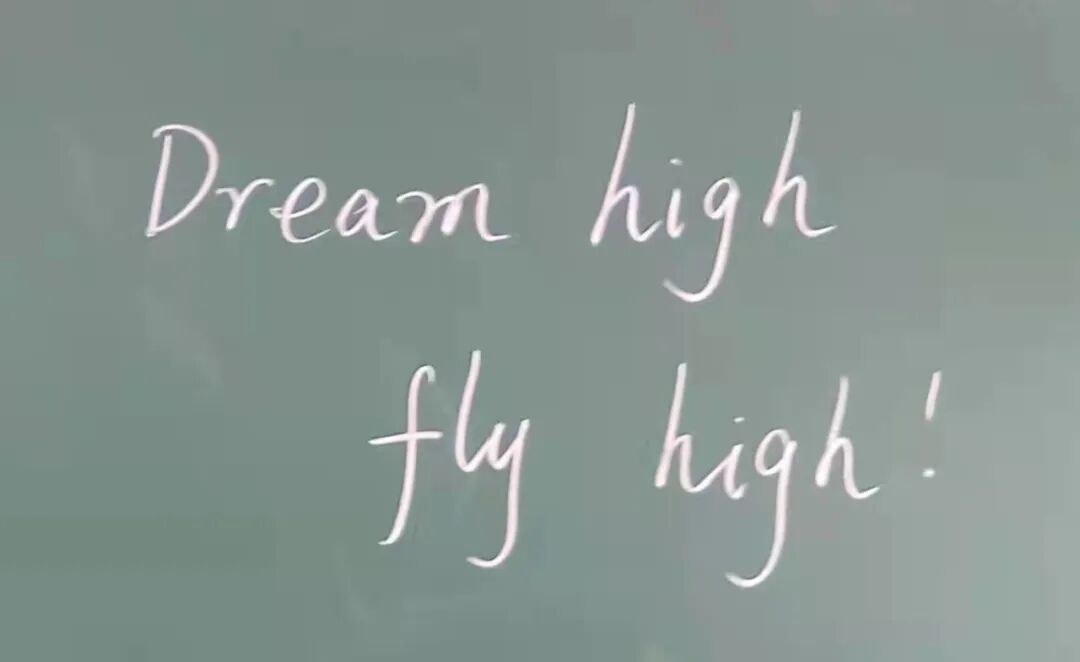 Dream high
fly high!